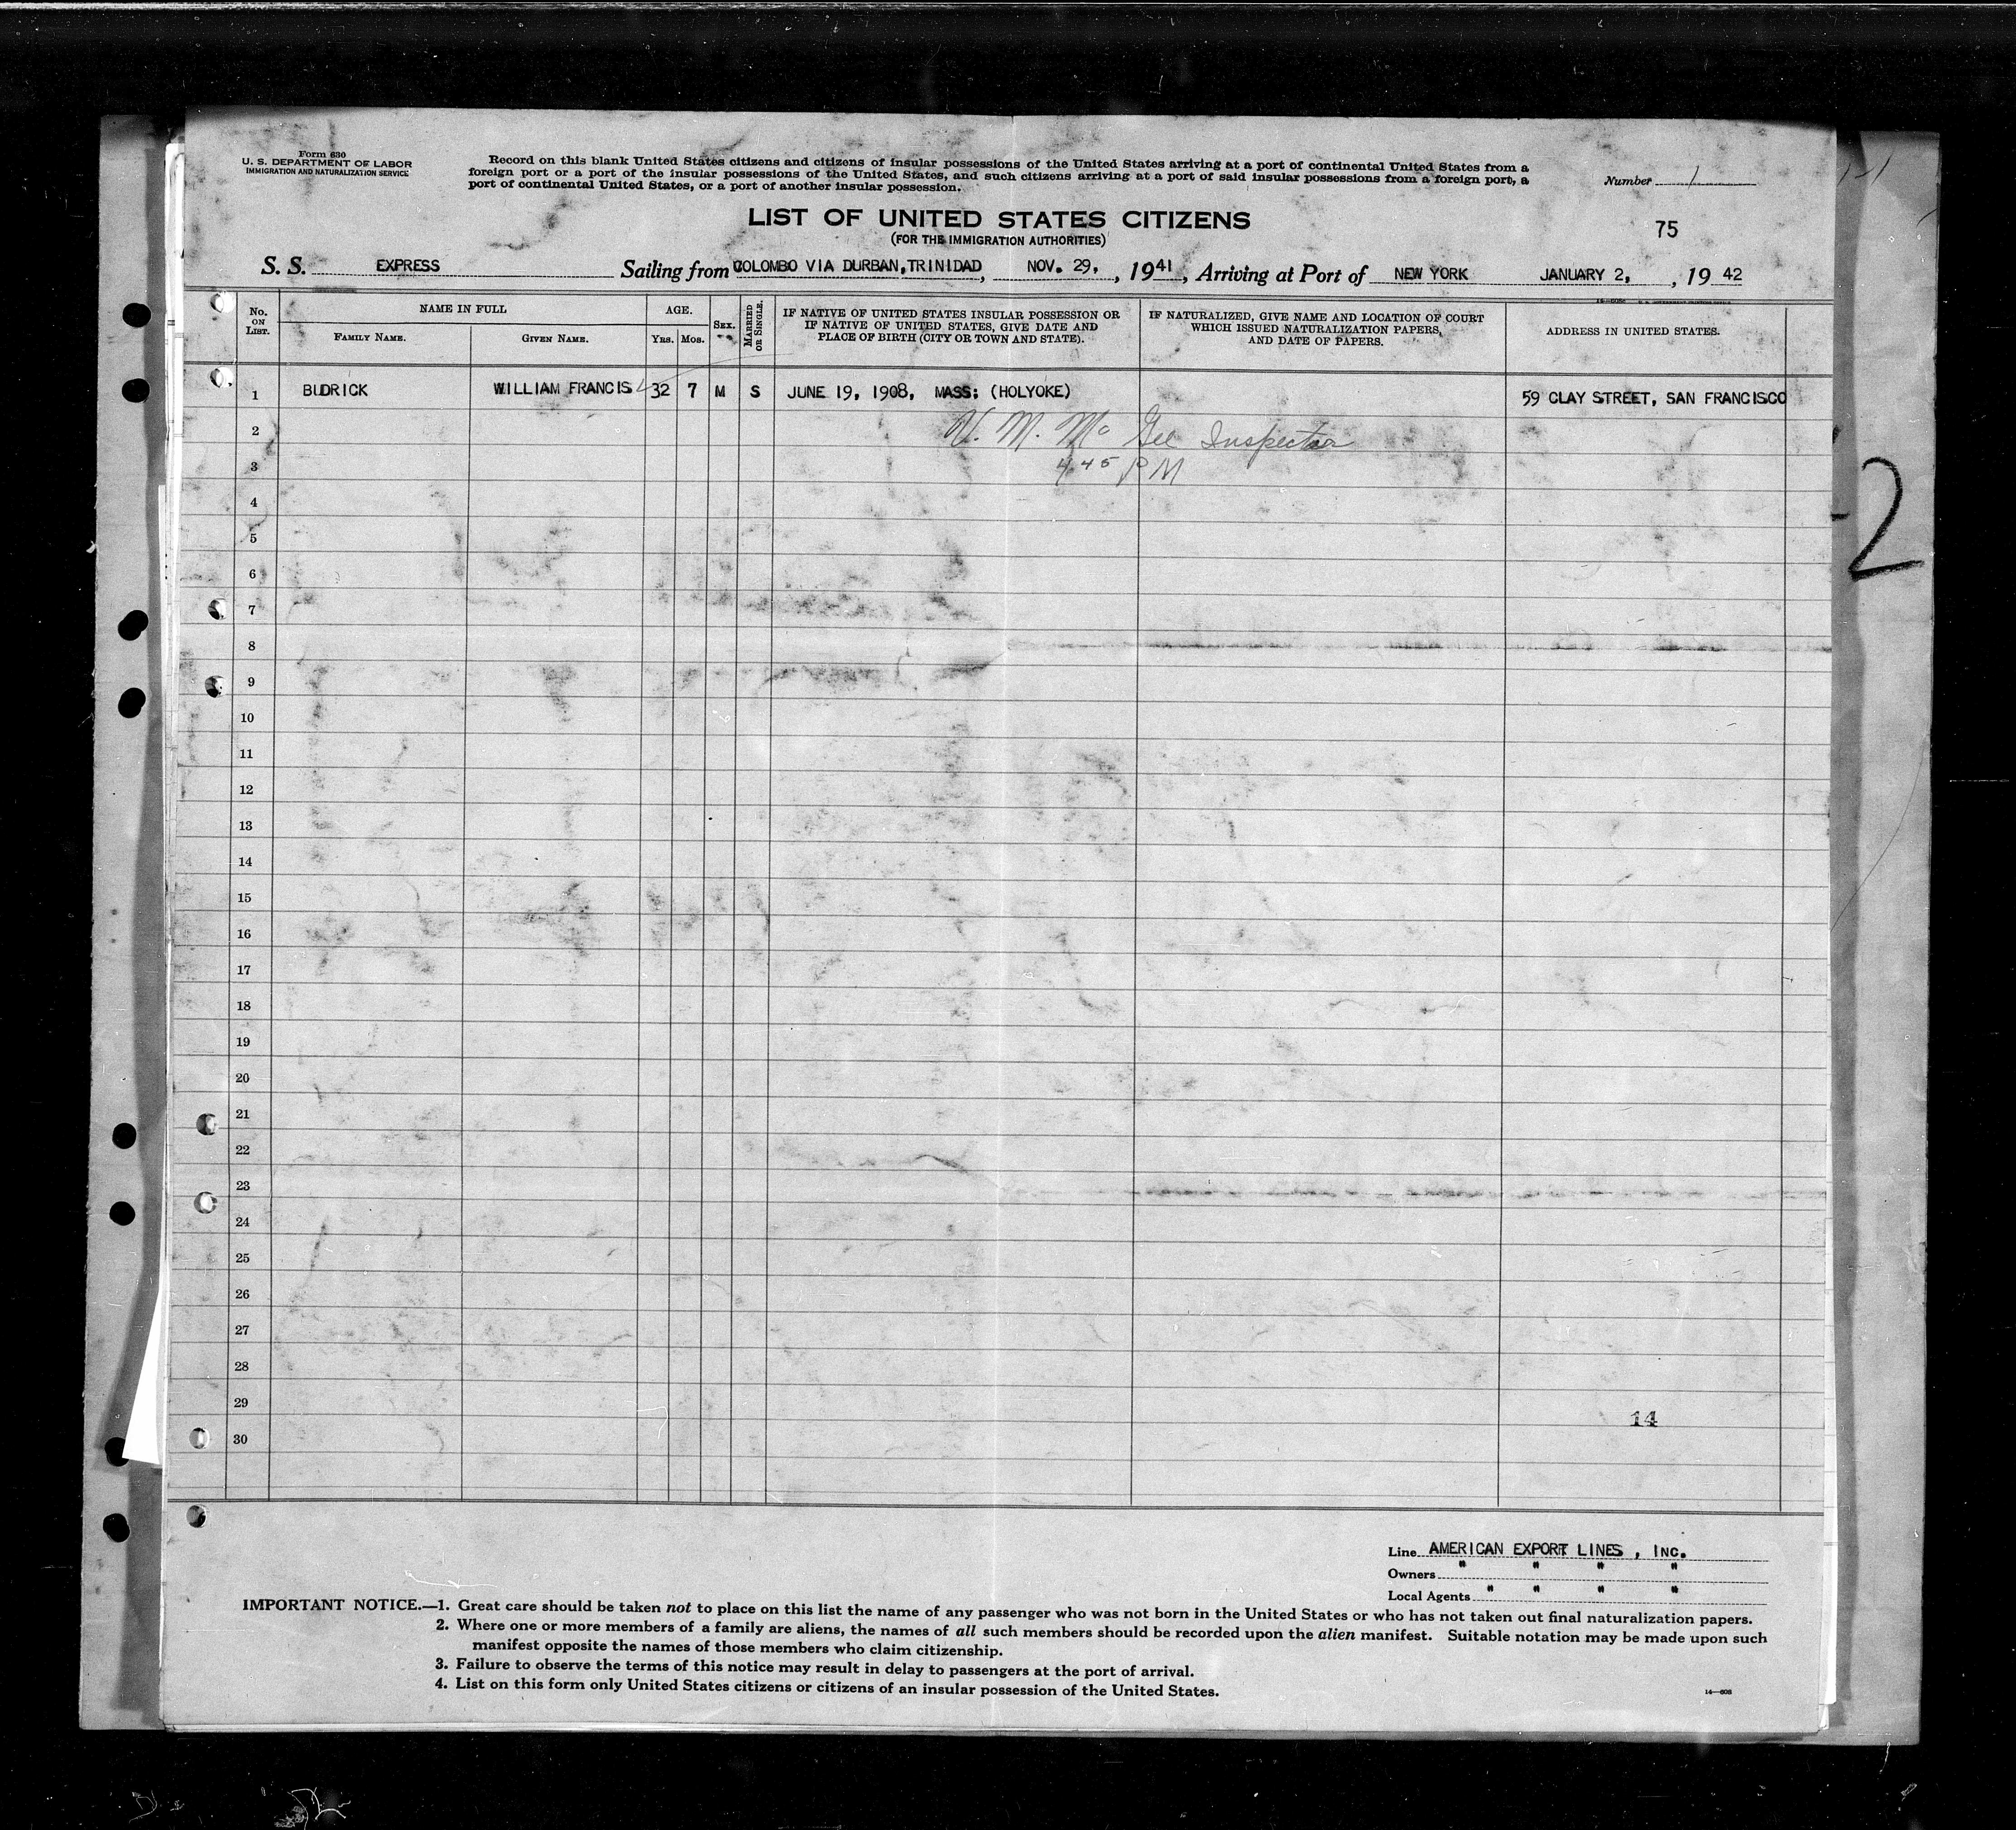 Form 630
U. S. DEPARTMENT OF LABOR
IMMIGRATION AND NATURALIZATION SERVICE
Record on this blank United States citizens and citizens of insular possessions of the United States arriving at a port of continental United States from a
foreign port or a port of the insular possessions of the United States, and such citizens arriving at a port of said insular possessions from a foreign port, a
port of continental United States, or a port of another insular possession.
Number 1
LIST OF UNITED STATES CITIZENS
(FOR THE IMMIGRATION AUTHORITIES)
75
S. S. EXPRESS Sailing from COLOMBO VIA DURBAN,TRINIDAD, NOV. 29, , 1941, Arriving at Port of NEW YORK JANUARY 2, , 19 42
No. ON LIST.
NAME IN FULL
FAMILY NAME. GIVEN NAME.
AGE.
YRS. MOS.
SEX.
MARRIED OR SINGLE.
IF NATIVE OF UNITED STATES INSULAR POSSESSION OR
IF NATIVE OF UNITED STATES, GIVE DATE AND
PLACE OF BIRTH (CITY OR TOWN AND STATE).
IF NATURALIZED, GIVE NAME AND LOCATION OF COURT
WHICH ISSUED NATURALIZATION PAPERS,
AND DATE OF PAPERS.
ADDRESS IN UNITED STATES.
1 BUDRICK WILLIAM FRANCIS 32 7 M S JUNE 19, 1908, MASS: (HOLYOKE) 59 CLAY STREET, SAN FRANCISCO
2 Mc Gee Inspector
3 4.45 PM
4
5
6
7
8
9
10
11
12
13
14
15
16
17
18
19
20
21
22
23
24
25
26
27
28
29
14
30
2
Line AMERICAN EXPORT LINES , INC.
Owners " " " "
Local Agents " " " "
IMPORTANT NOTICE.—1. Great care should be taken not to place on this list the name of any passenger who was not born in the United States or who has not taken out final naturalization papers.
2. Where one or more members of a family are aliens, the names of all such members should be recorded upon the alien manifest. Suitable notation may be made upon such
manifest opposite the names of those members who claim citizenship.
3. Failure to observe the terms of this notice may result in delay to passengers at the port of arrival.
4. List on this form only United States citizens or citizens of an insular possession of the United States.
14—608